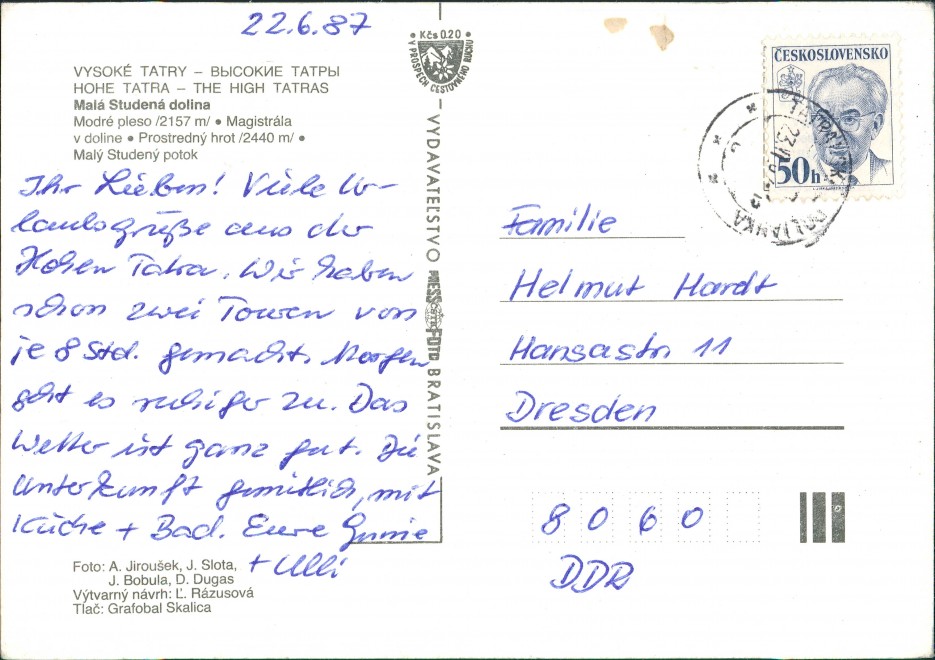 22.6.87
Kčs 0.20
V PROSPECH CESTOVNÉHO RUCHU
VYSOKÉ TATRY – ВЫСОКИЕ ТАТРЫ
HOHE TATRA – THE HIGH TATRAS
Malá Studená dolina
Modré pleso /2157 m/ • Magistrála
v doline • Prostredný hrot /2440 m/ •
Malý Studený potok
Ihr Lieben! Viele Ur-
laubsgrüße aus der
Hohen Tatra. Wir haben
schon zwei Touren von
je 8 Std. gemacht. Morgen
geht es ruhiger zu. Das
Wetter ist ganz gut. Die
Unterkunft gemütlich, mit
Küche + Bad. Eure
+ Ulli
Foto: A. Jiroušek, J. Slota,
J. Bobula, D. Dugas
Výtvarný návrh: Ľ. Rázusová
Tlač: Grafobal Skalica
VYDAVATEĽSTVO
FOTO BRATISLAVA
ČESKOSLOVENSKO
50h
POLIANKA
Familie
Helmut Hardt
Hansastr. 11
Dresden
8060
DDR